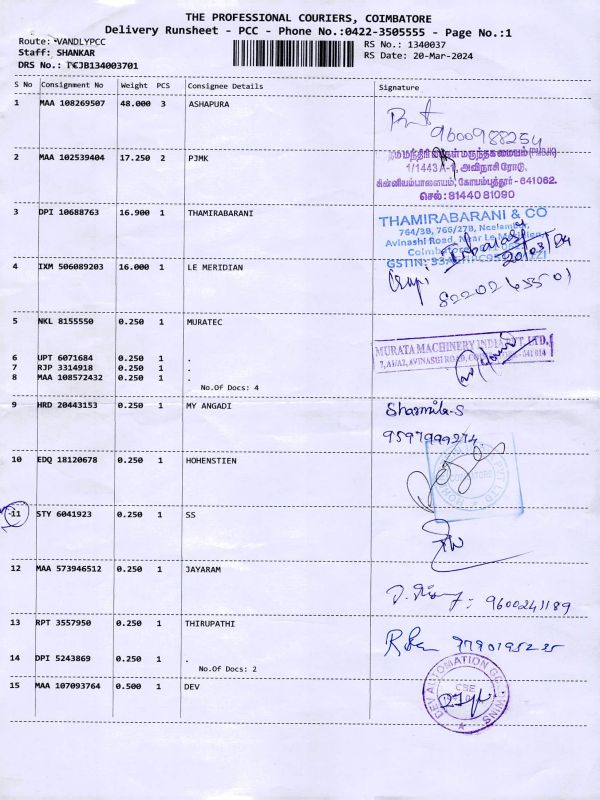 THE PROFESSIONAL COURIERS, COIMBATORE
Delivery Runsheet - PCC - Phone No.:0422-3505555 - Page No.:1
Route: VANDLYPCC
Staff: SHANKAR
RS No.: 1340037
RS Date: 20-Mar-2024
DRS No.: TCJB134003701
S No Consignment No Weight PCS Consignee Details Signature
1 MAA 108269507 48.000 3 ASHAPURA
9600988254
2 MAA 102539404 17.250 2 PJMK
1/1443 A-1, அவிநாசி ரோடு,
சின்னியம்பாளையம், கோயம்புத்தூர் - 641062.
செல் : 81440 81090
3 DPI 10688763 16.900 1 THAMIRABARANI
THAMIRABARANI & CO
764/3B, 766/27B, Neelambur,
Avinashi Road, Near Le Meridien,
GSTIN:
4 IXM 506089203 16.000 1 LE MERIDIEN
5 NKL 8155550 0.250 1 MURATEC
MURATA MACHINERY INDIA PVT. LTD.
6 UPT 6071684 0.250 1 .
7 RJP 3314918 0.250 1 .
8 MAA 108572432 0.250 1 .
No.Of Docs: 4
9 HRD 20443153 0.250 1 MY ANGADI
Sharmila-S
9597999274
10 EDQ 18120678 0.250 1 HOHENSTIEN
11 STY 6041923 0.250 1 SS
12 MAA 573946512 0.250 1 JAYARAM
9600241189
13 RPT 3557950 0.250 1 THIRUPATHI
14 DPI 5243869 0.250 1 .
No.Of Docs: 2
15 MAA 107093764 0.500 1 DEV
DEV AUTOMATION
CBE